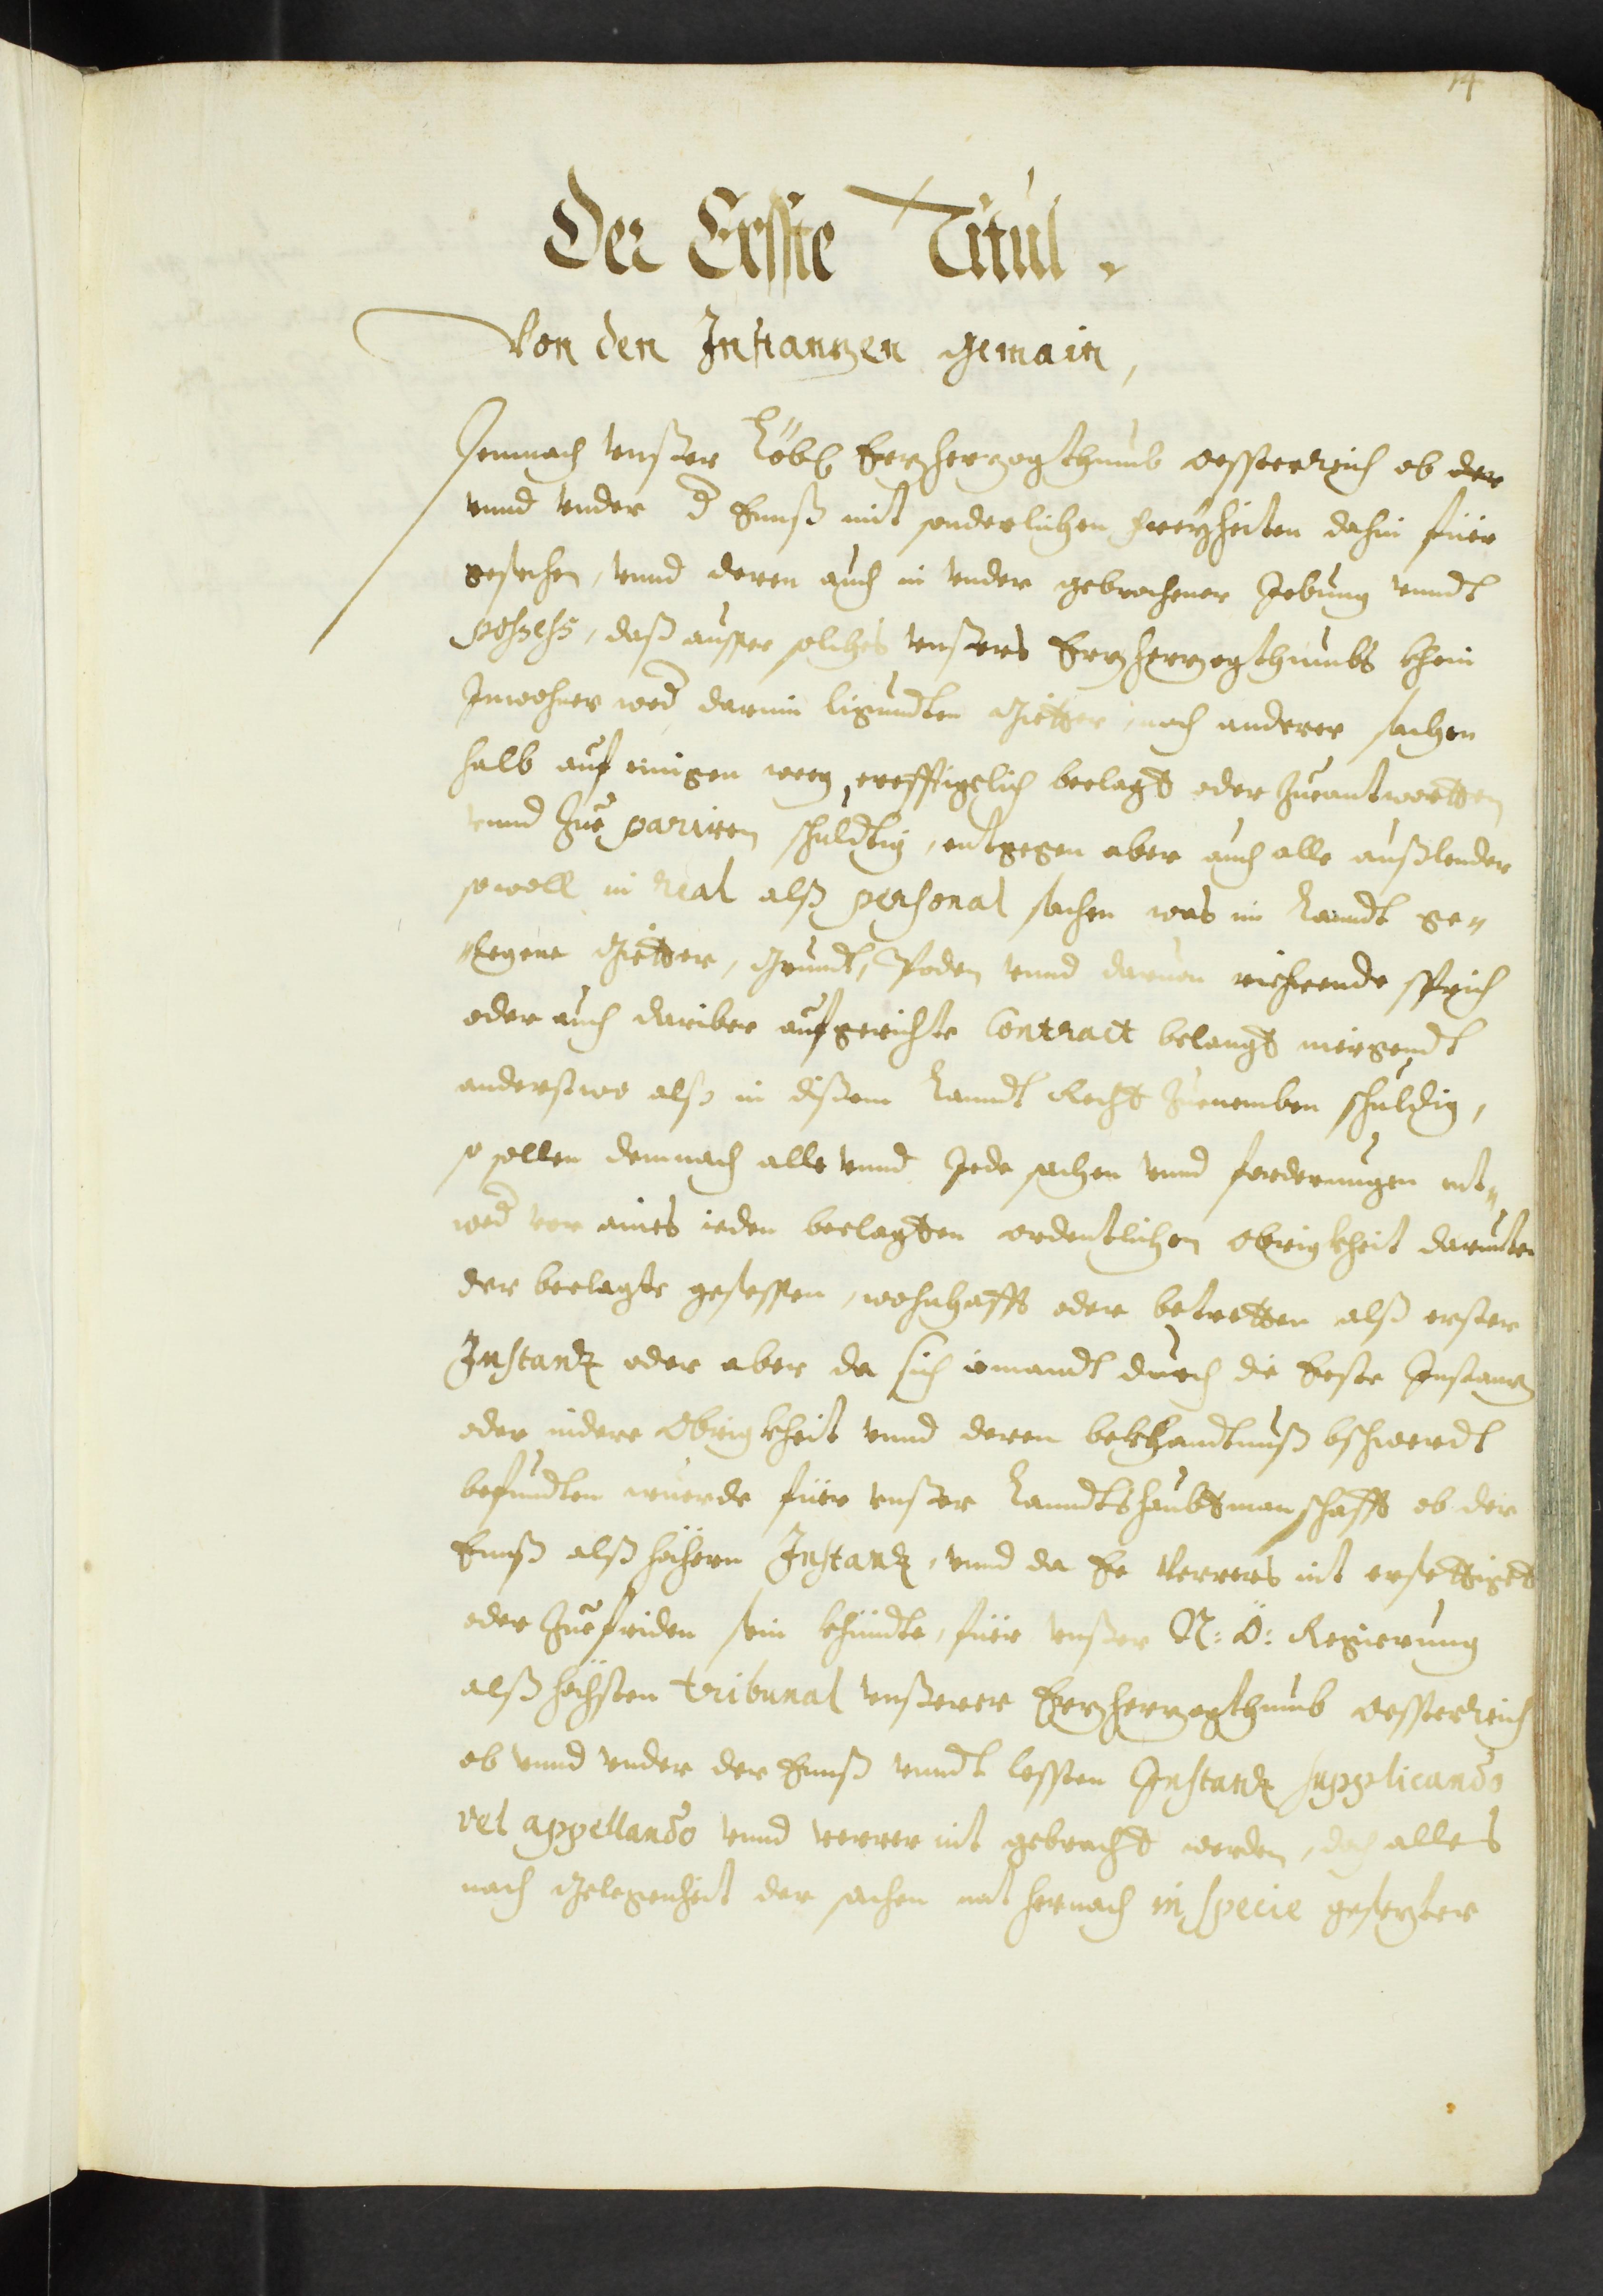 14
Der Erste Titul.
Von den Instantzen gemain,
Demnach vnßer Löbl Ertzhertzogthumb Oessterreich ob der
vnnd vnder d Ennß mit sonderlichen Freÿheiten dahin füer
gesehen, vnnd deren auch in vnder gebrochener Iebung vnndt
possess, daß ausser solches vnßers Ertzhertzogthumbs khein
Inwohner wed darinn ligundten Gietter, noch anderer sachen
halb auf einigen weeg, beclagt oder Zueantwortten
vnnd Zue pariren schuldtig, entgegen aber auch alle außlender
sowoll in real alß personal sachen was im Landt ge„
„legene Gietter, Grundt, Poden vnnd daruon sprich
oder auch dariber aufgerichte Contract belangt niergendt
anderstwo alß in dißem Landt Recht Zuenemben schuldig,
so sollen demnach alle vnnd Jede sachen vnnd forderungen ent„
wed vor aines ieden beclagten ordentlichen Obrigkheit darunter
der beclagte gesessen, wohnhafft oder betretten alß erster
Instantz oder aber da sich iemandt durch die Erste Instantz
oder nidere Obrigkheit vnnd deren bekhandtnuß bschwerdt
befundten wuerde füer vnßer Landtshaubtmanschafft ob der
Ennß alß höhern Instantz, vnnd da Er verrers nit ersettiget
oder Zuefriden sein khündte, füer vnßer N: Ö: Regierung
alß höchsten tribunal vnßerer Ertzhertzogthumb Oessterreich
ob vnnd vnder der Ennß vnndt lessten Instantz supplicando
vel appellando vnnd verrer nit gebracht werden, doch alles
nach Gelegenheit der sachen hernach in specie gesetzter